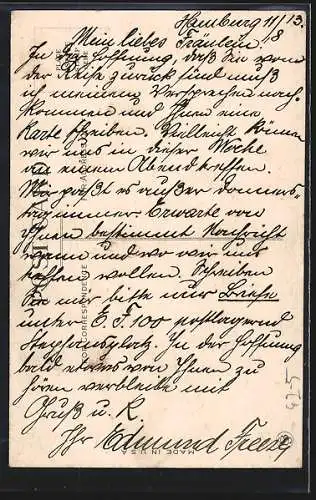 Hamburg 11/8 13.
Mein liebes Fräulein!
In der Hoffnung, daß Sie von
der Reise zurück sind muß
ich meinem Versprechen nach-
kommen und Ihnen eine
Karte schreiben. Vielleicht können
wir uns in dieser Woche
an einem Abend treffen.
Mir paßt es außer Donners-
tag immer. Erwarte von
Ihnen bestimmt Nachricht
wann und wo wir uns
treffen wollen. Schreiben
Sie mir bitte nur Briefe
unter E. F. 100 postlagernd
Stephansplatz. In der Hoffnung
bald etwas von Ihnen zu
hören verbleibe mit
Gruß u. K.
Ihr Edmund
MADE IN U.S.A.
CORRESPONDENCE